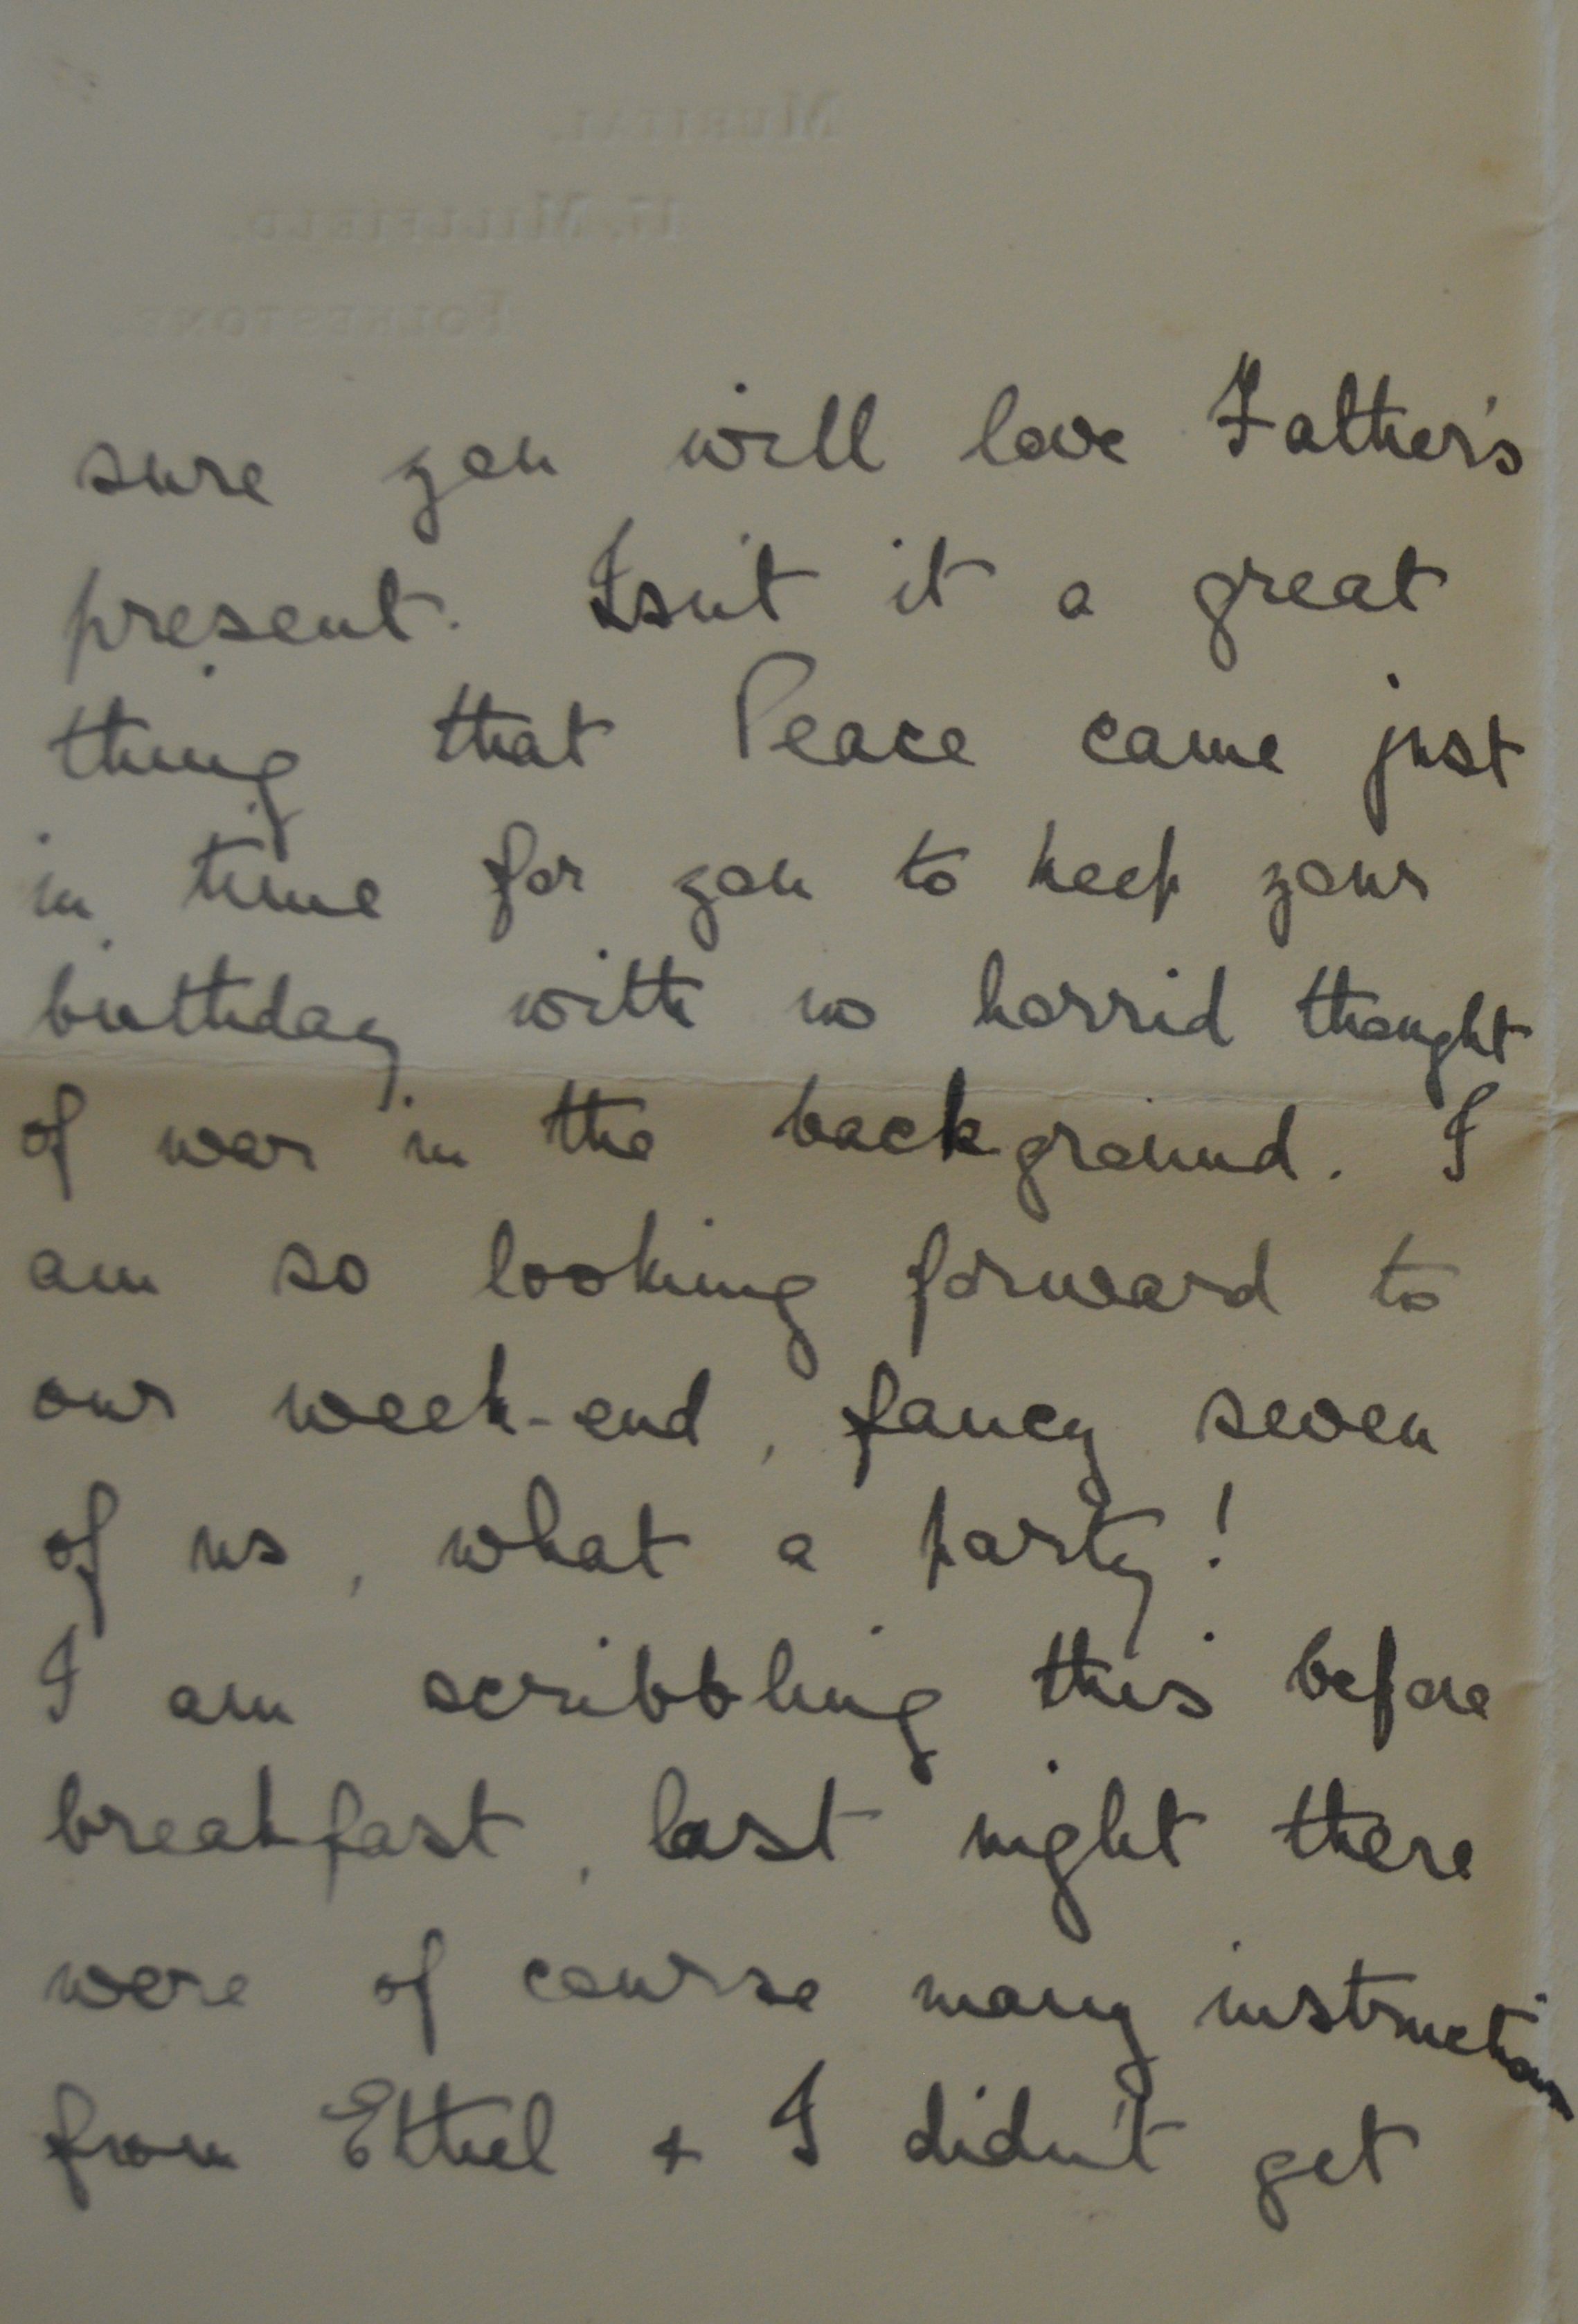 17, MILLFIELD.
FOLKESTONE.
sure you will love Father's
present. Isn't it a great
thing that Peace came just
in time for you to keep your
birthday with no horrid thought
of war in the background. I
am so looking forward to
our week-end, fancy seven
of us, what a party!
I am scribbling this before
breakfast, last night there
were of course many instructions
from Ethel + I didn't get